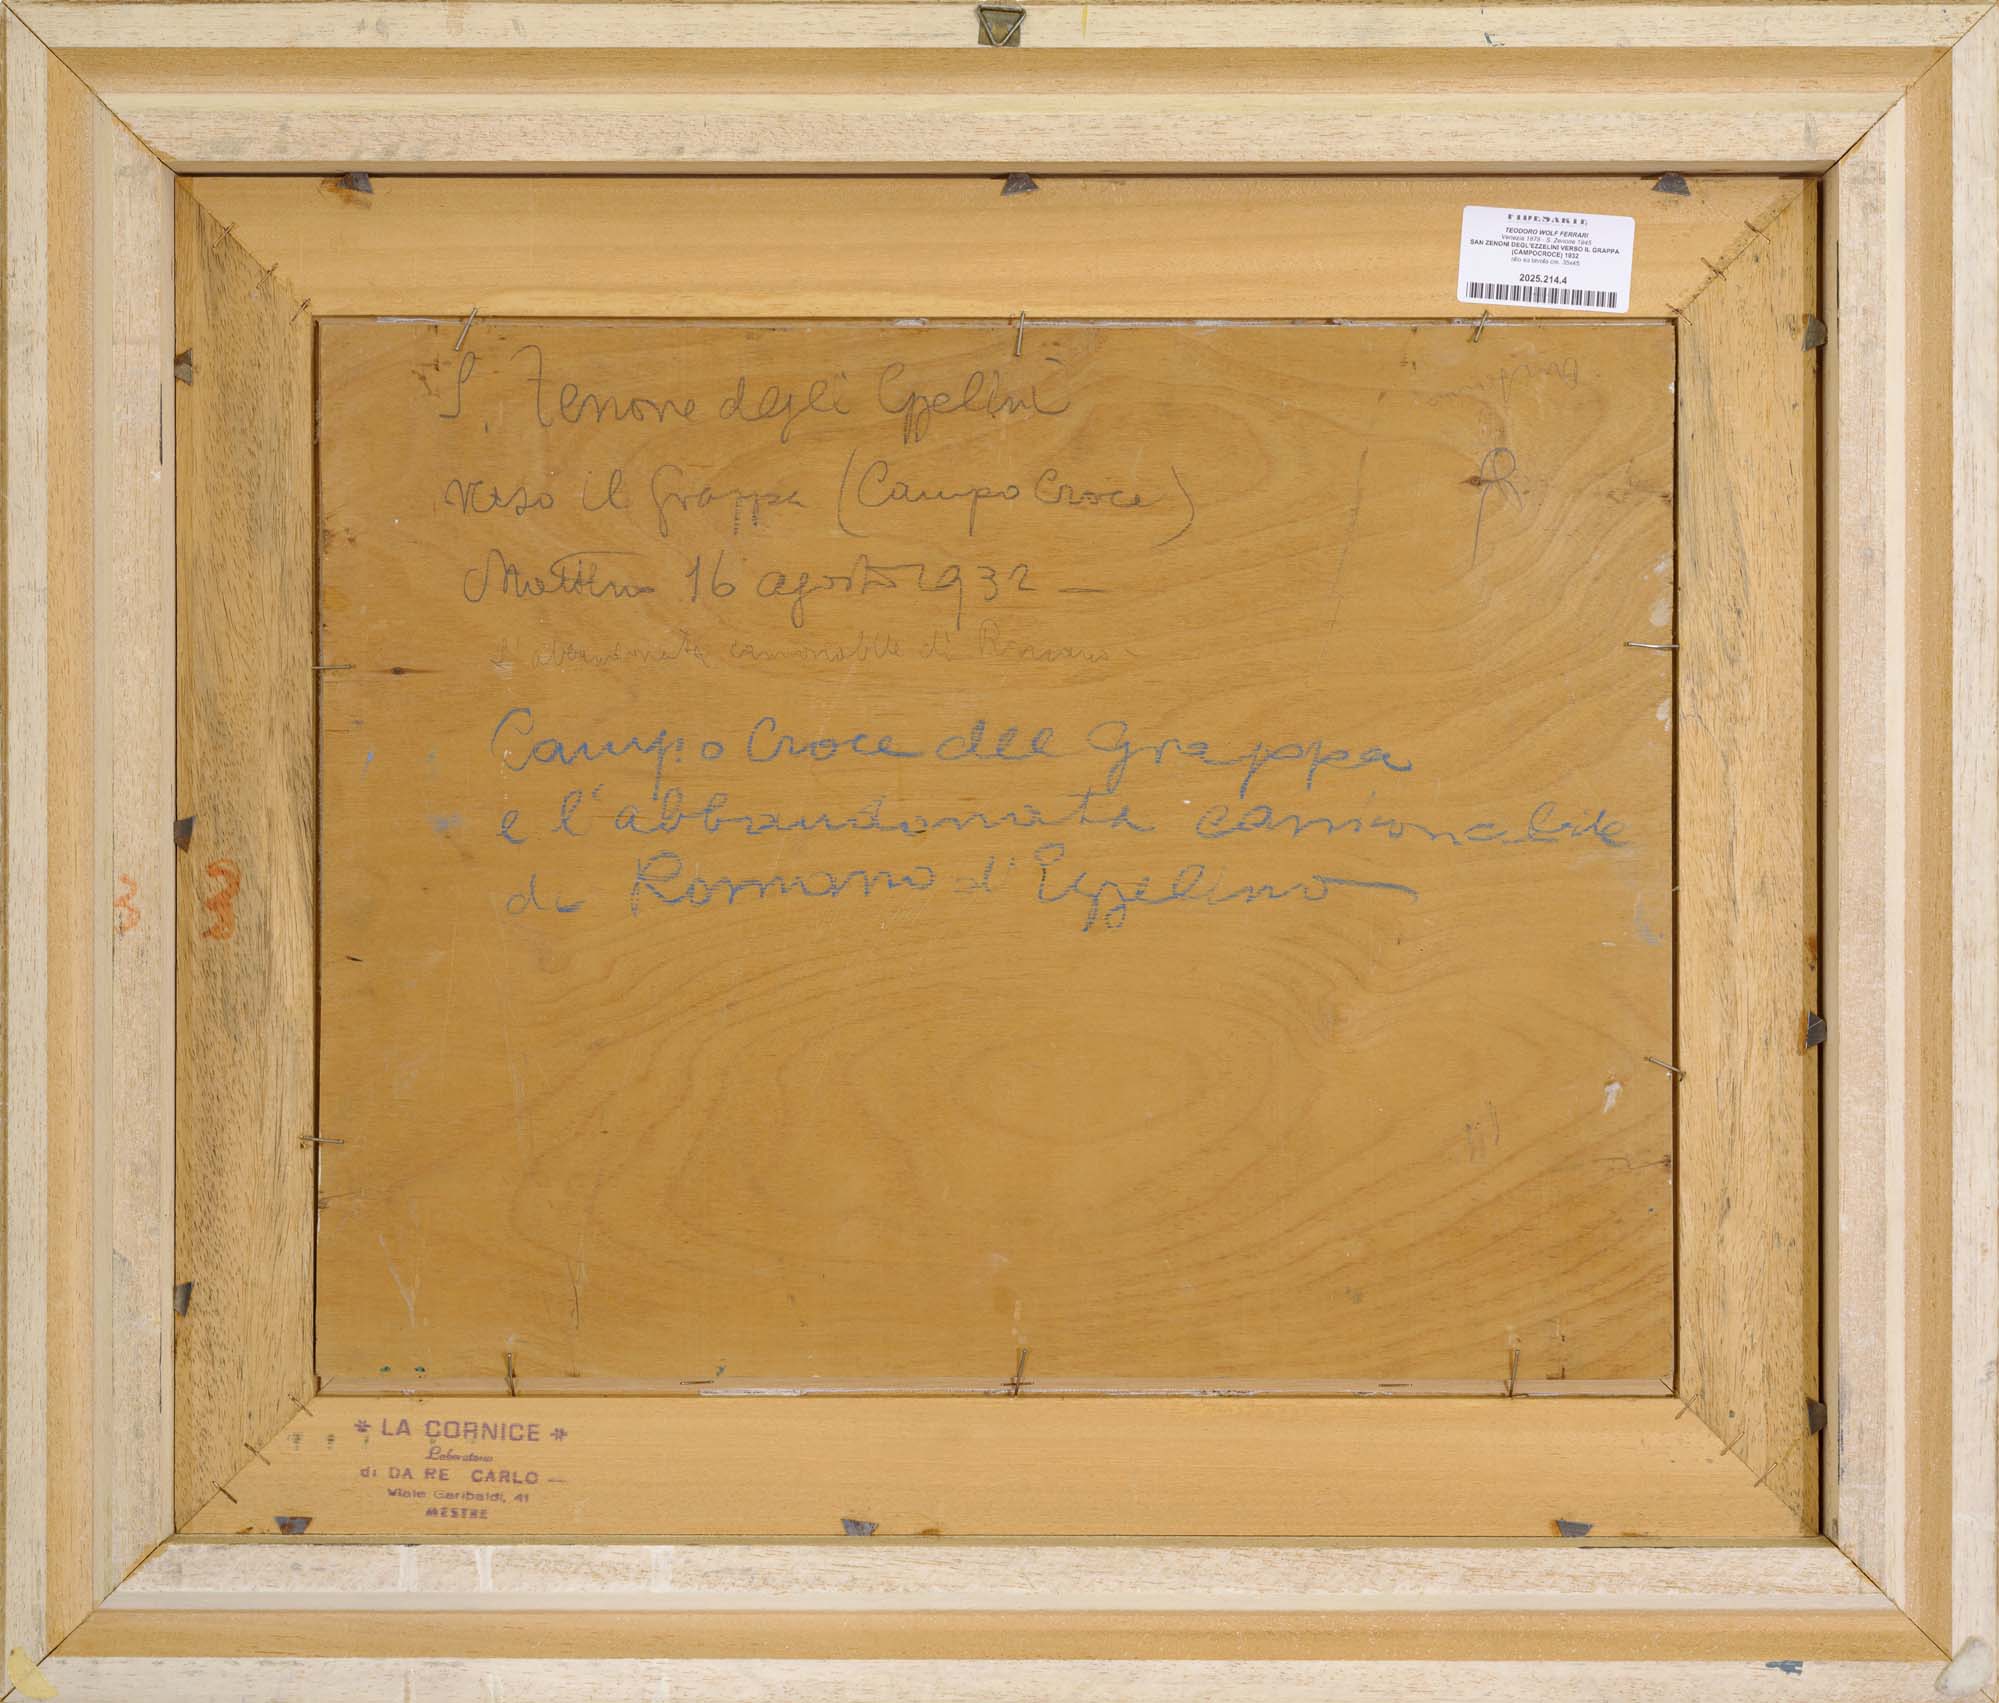 FIDESARTE
TEODORO WOLF FERRARI
Venezia 1878 - S. Zenone 1945
SAN ZENONI DEGL'EZZELINI VERSO IL GRAPPA
(CAMPOCROCE) 1932
olio su tavola cm. 35x45
2025.214.4
S. Zenone degli Ezzelini
verso il Grappa (Campo Croce)
Mattina 16 agosto 1932 —
L'abbandonata camionabile di Romano -
Campo Croce del Grappa
e l'abbandonata camionabile
di Romano d'Ezzelino —
* LA CORNICE *
Laboratorio
di DA RE CARLO —
Viale Garibaldi, 41
MESTRE